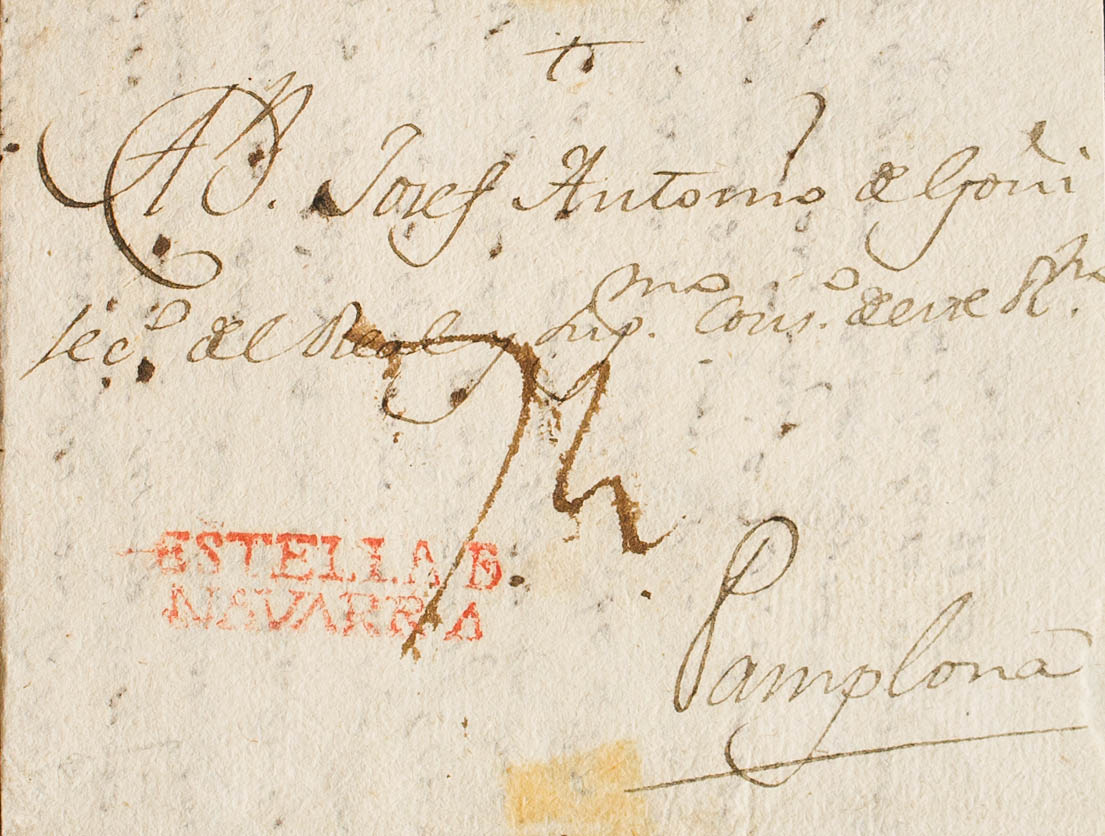 †
A D. Josef Antonio de Goñi
Sec.º del Real y Sup.mo Cons.º de este R.no
ESTELLA B.
NAVARRA
Pamplona